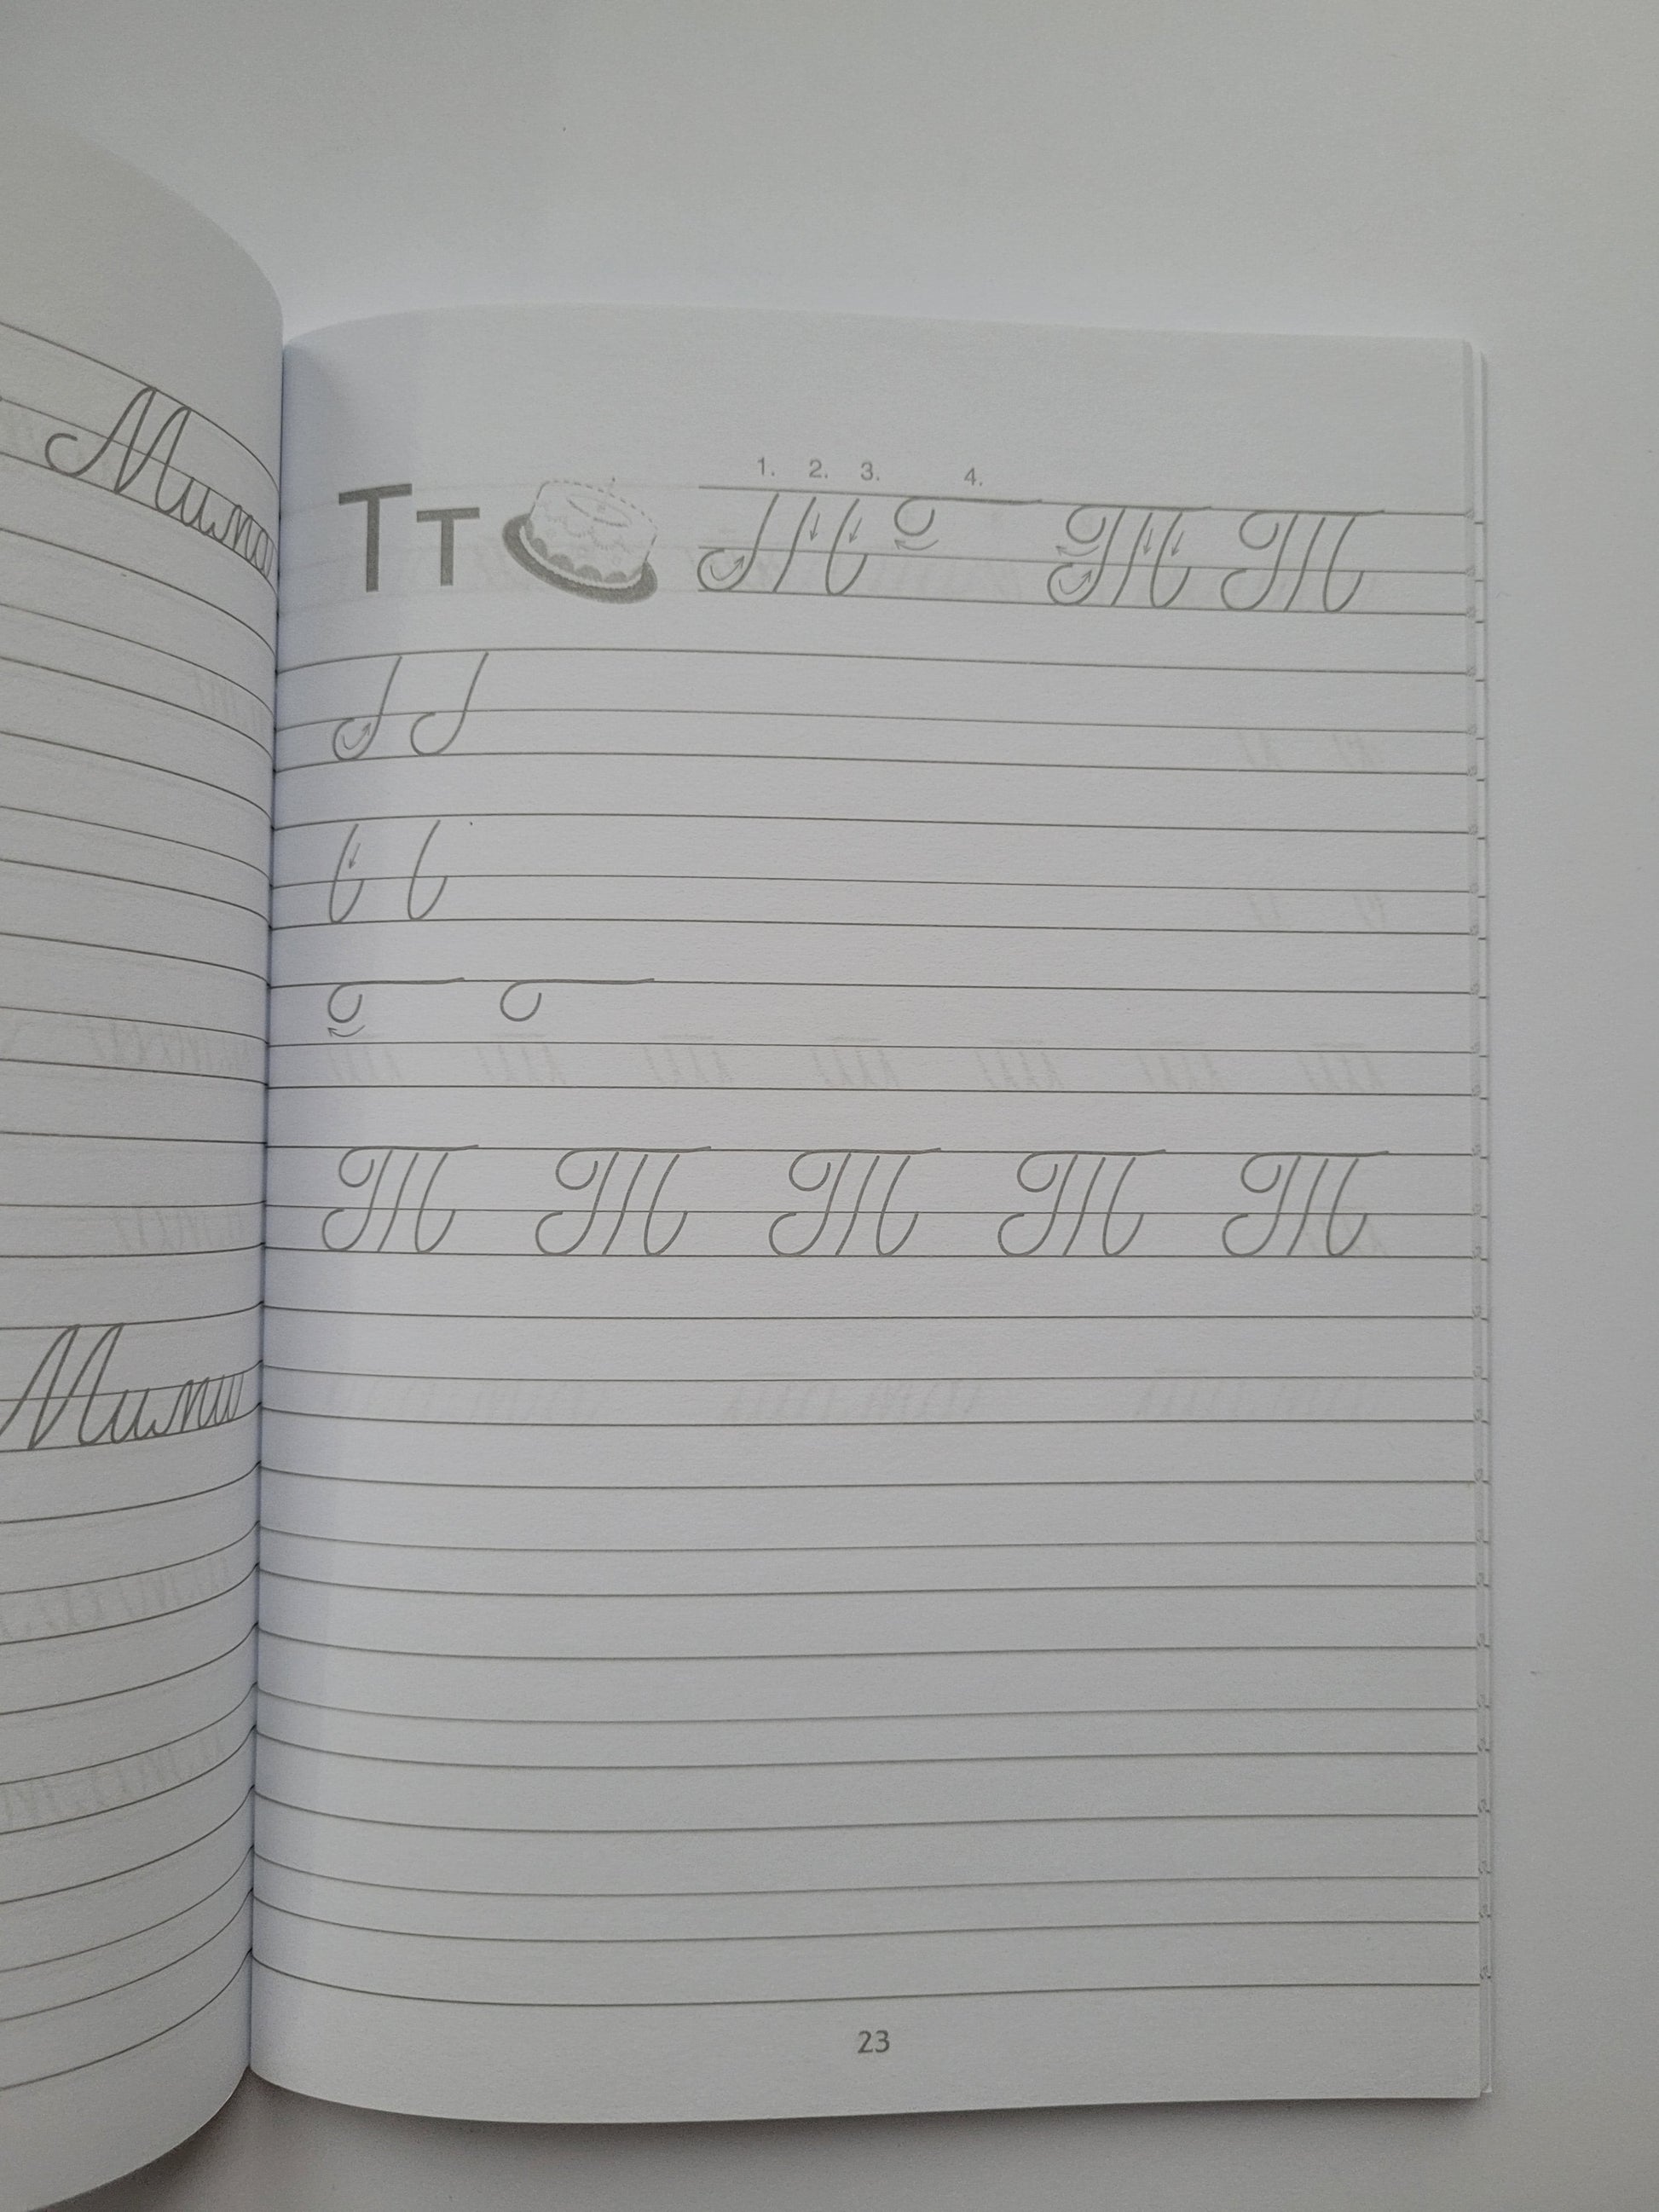 Мими
Тт 1. 2. 3. 4. Т Т
Т Т Т Т Т
23